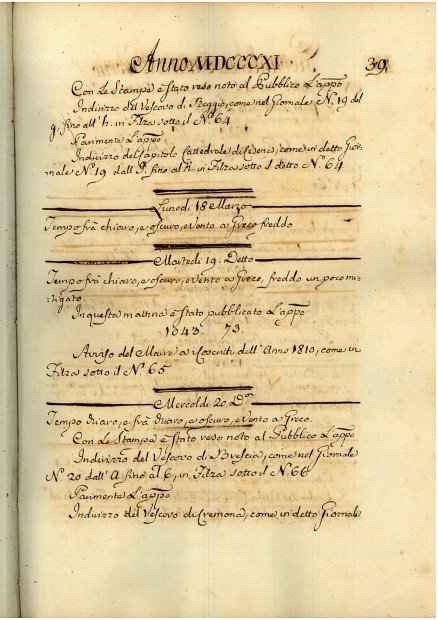 Anno MDCCCXI 39
Con Le Stampe è stato reso noto al Pubblico L'appo
Indirizzo del Vescovo di Reggio, come nel Giornale N. 19 del
g. fino all' h. in Filza sotto il N.o 64
Parimente L'appo
Indirizzo del Capitolo Cattedrale di Cesena, come in detto Gior-
nale N. 19 dall' fino al h in Filza sotto il detto N.o 64
Lunedì 18 Marzo
Tempo frà chiaro, e oscuro, e Vento a Greco freddo
Martedì 19. Detto
Tempo frà chiaro, e oscuro, e Vento a Greco, freddo un poco mi-
tigato.
In questa mattina è stato pubblicato L'appo
1043. 73.
Avviso del Maire a i Coscritti dell' Anno 1810, come in
Filza sotto il N.o 65
Mercoldì 20 Do
Tempo chiaro, e frà chiaro, e oscuro, e Vento a Greco.
Con Le Stampe è stato reso noto al Pubblico L'appo
Indirizzo del Vescovo di Brescia, come nel Giornale
N.o 20 dall' A fino al C, in Filza sotto il N. 66
Parimente L'appo
Indirizzo del Vescovo di Cremona, come in detto Giornale